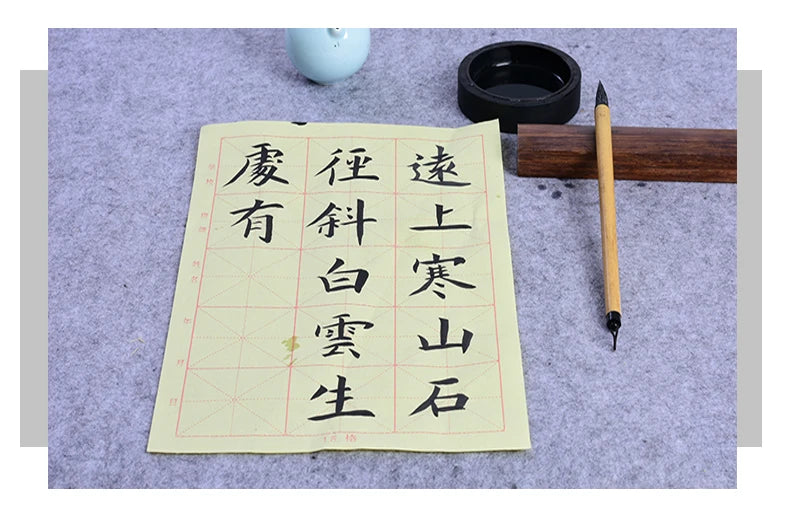 遠上寒山石
徑斜白雲生
處有
15格